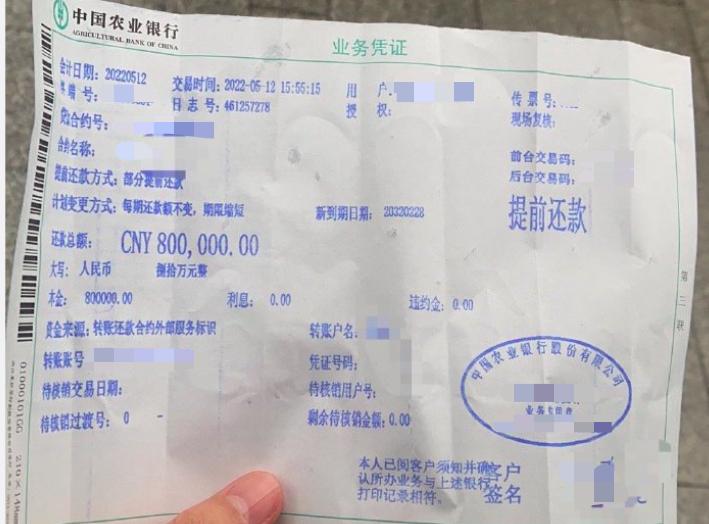 中国农业银行
AGRICULTURAL BANK OF CHINA
业务凭证
会计日期: 20220512 交易时间: 2022-05-12 15:55:15 用 户: 传 票 号:
终端 号: 日 志 号: 461257278 授 权: 现场复核:
贷合约号:
合约名称: 前台交易码:
提前还款方式: 部分提前还款 后台交易码:
计划变更方式: 每期还款额不变, 期限缩短 新到期日期: 20320228 提前还款
还款总额: CNY 800,000.00
大写: 人民币 捌拾万元整
本金: 800000.00 利息: 0.00 违约金: 0.00
资金来源: 转账还款合约外部服务标识 转账户名:
转账账号 凭证号码:
待核销交易日期: 待核销用户号:
待核销过渡号: 0 - 剩余待核销金额: 0.00
中国农业银行股份有限公司
本人已阅客户须知并确
认所办业务与上述银行
打印记录相符。
客户
签名
第三联
0100010100 210×148